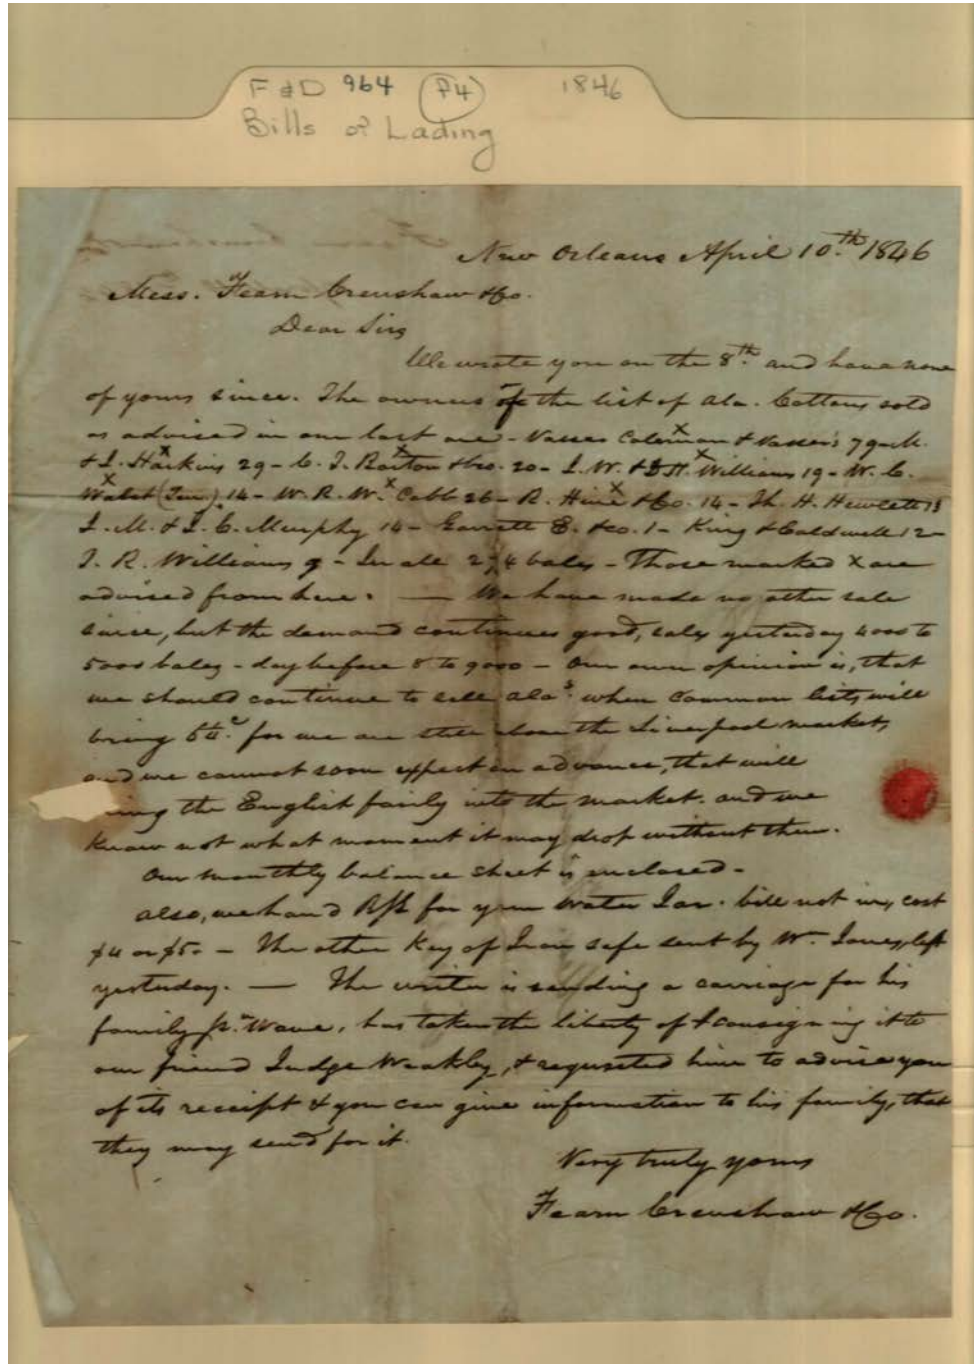 F & D 964 (P4) 1846
Bills of Lading
New Orleans April 10th 1846
Mess. Fearn Crenshaw & Co.
Dear Sirs
We wrote you on the 8th and have none
of yours since. The owners of the list of Ala. Cottons sold
as advised in our last are - Vasser Coleman & Vasser's 79
& J. Harkins 29 - C. J. Barton & Co. 20 - J. W. & D. H. Williams 19 - W. C.
(Jun.) 14 - W. R. W. Cobb 26 - R. Hine & Co. 14 - Th. H. Hewlett 13
J. M. & J. C. Murphy 14 - Garrett E. & Co. 1 - King & Caldwell 12 -
J. R. Williams 9 - In all 274 bales - Those marked x are
advised from here. — We have made no other sale
since, but the demand continues good, sales yesterday 4000 to
5000 bales - day before 8 to 9000 - Our own opinion is, that
we should continue to sell Alas. when common lists will
bring for we are still above the Liverpool market,
and we cannot soon expect an advance, that will
the English fairly into the market. and we
know not what moment it may drop without them.
Our monthly balance sheet is enclosed -
Also, we hand for your Water Jar. bill not in, cost
$4 or $5. - The other Key of Iron safe sent by W. Jones, left
yesterday. — The writer is sending a carriage for his
family pr. Wave, has taken the liberty of consigning it to
our friend Judge Weakley, & requested him to advise you
of its receipt & you can give information to his family, that
they may send for it.
Very truly yours
Fearn Crenshaw & Co.